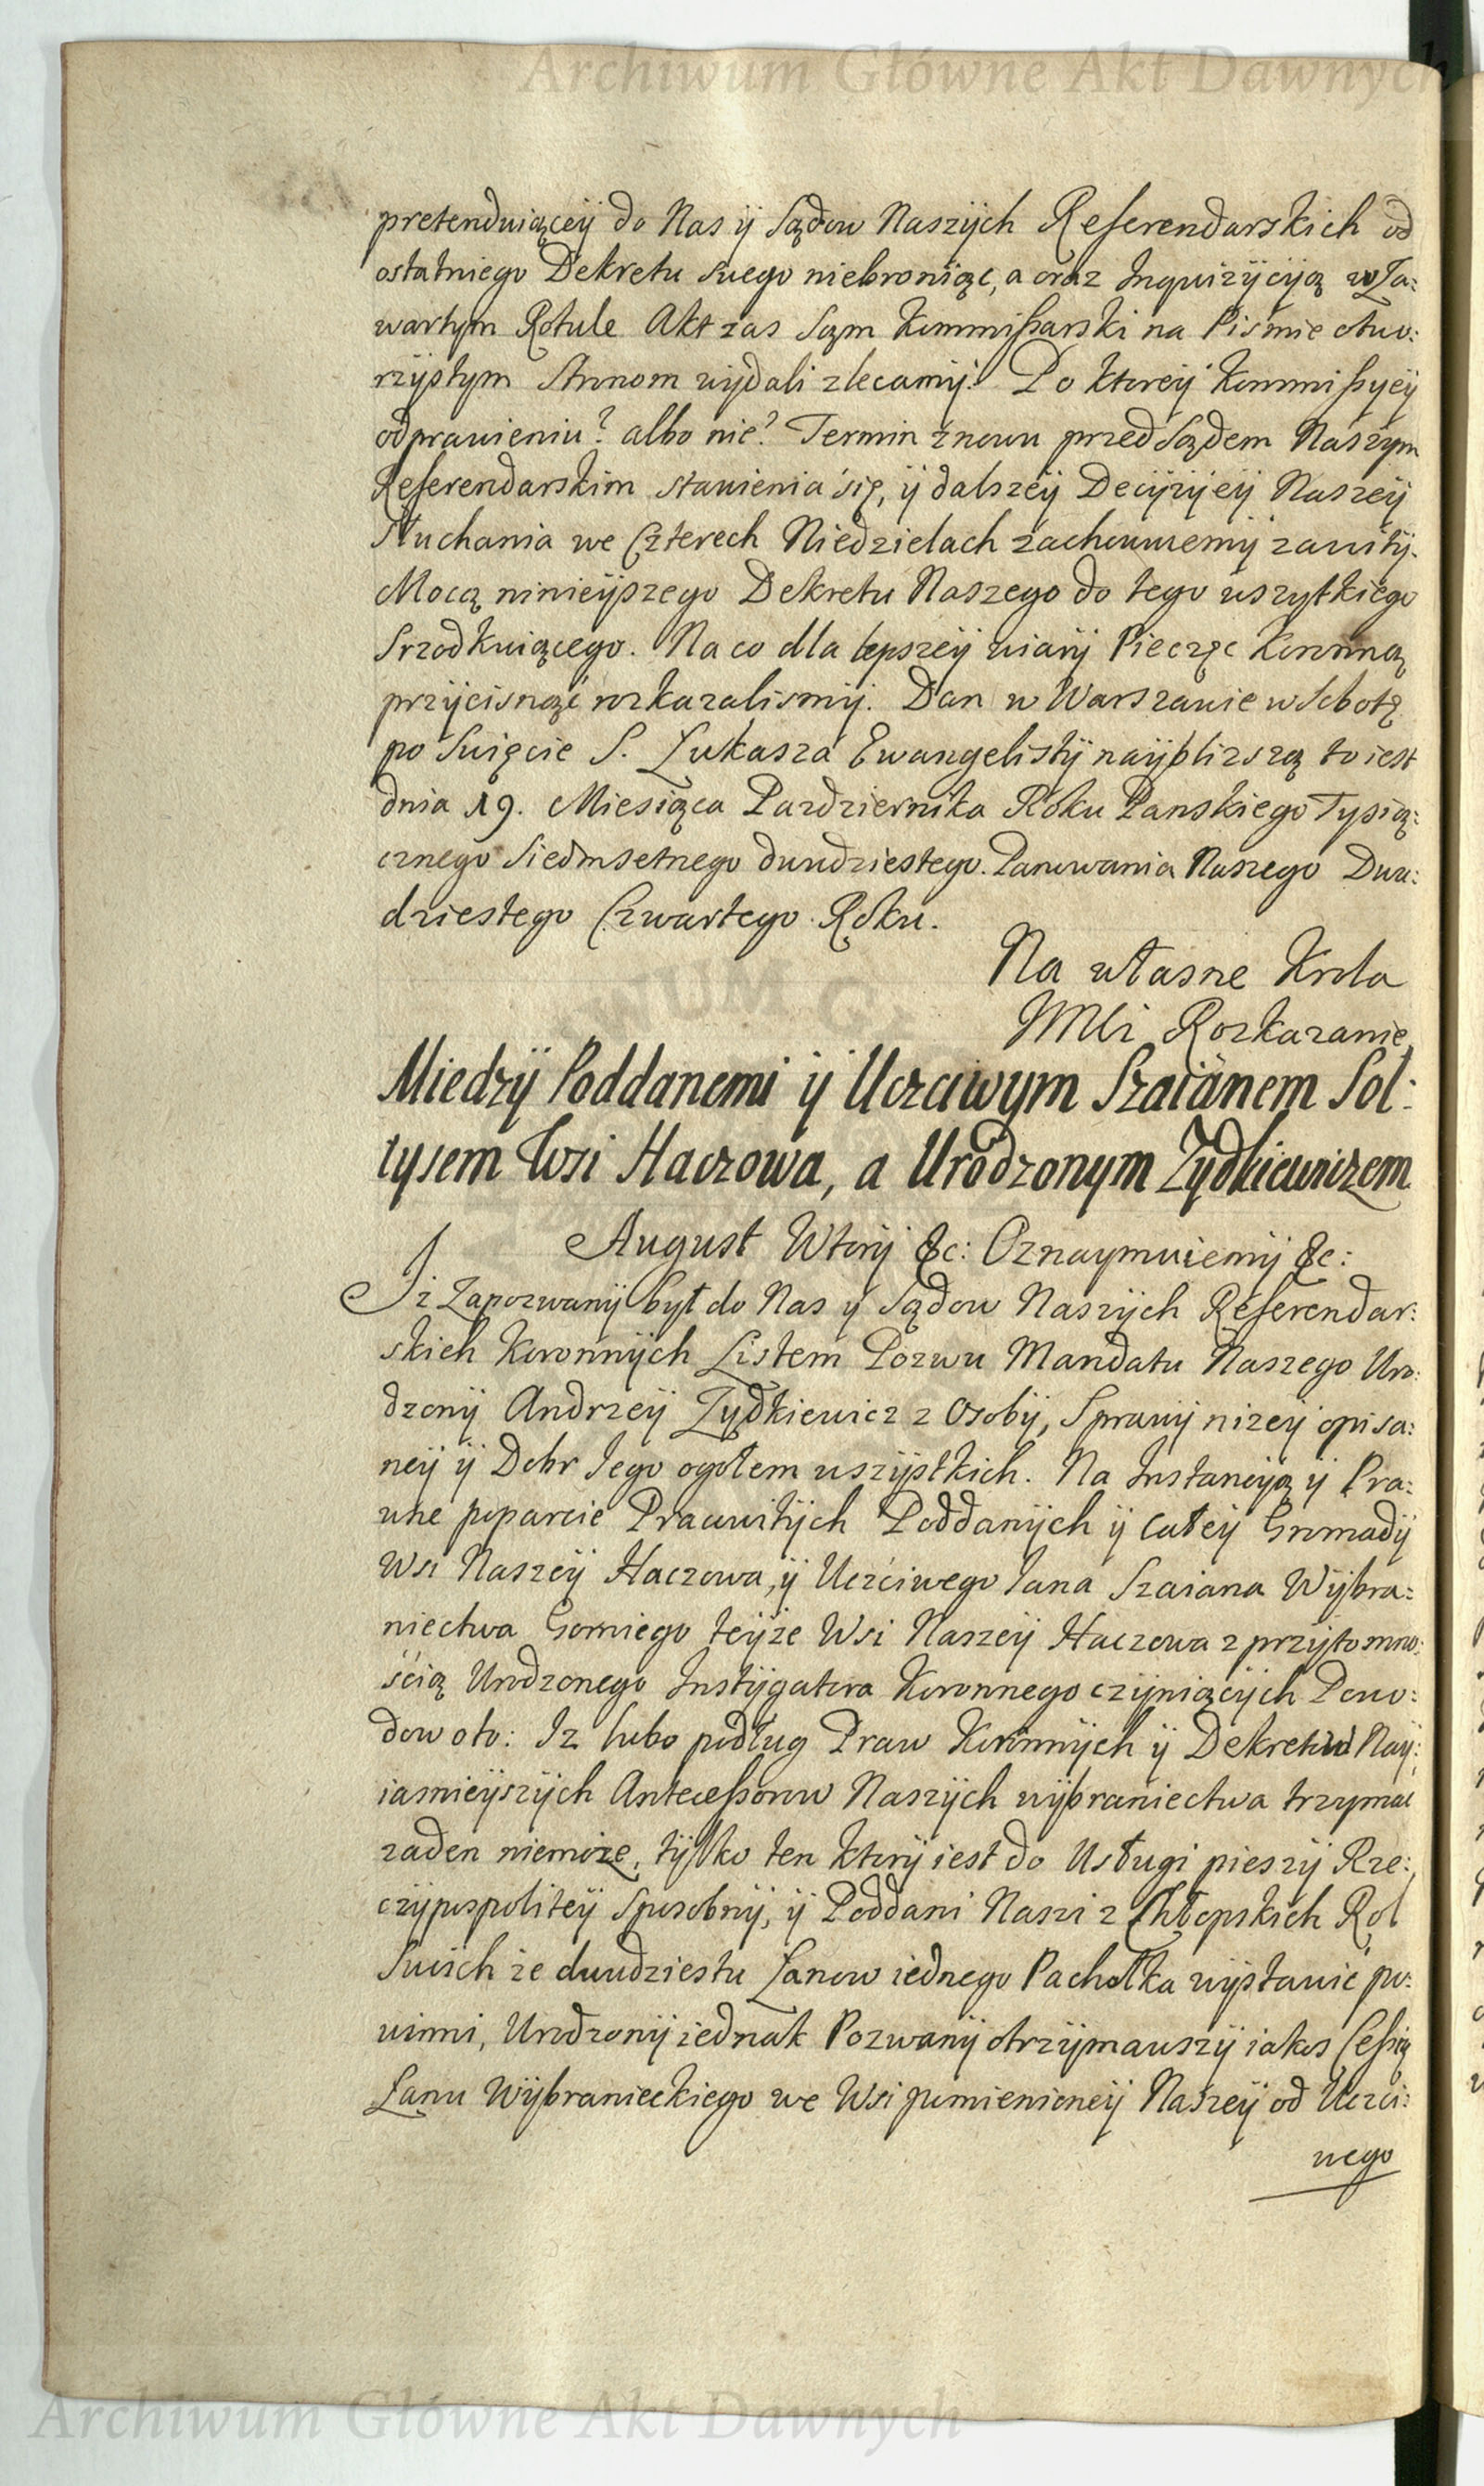 Archiwum Główne Akt Dawnych
pretenduiącey do Nas y Sądow Naszych Referendarskich od
ostatniego Dekretu swego niebroniąc, a oraz Inquizycyią w Za:
wartym Rotule Akt zas Sązm Kommissarski na Pismie otwo:
rzystym Stronom wydali zlecamy. Po ktorey Kommissyey
odprawieniu? albo nie? Termin znowu przed Sądem Naszym
Referendarskim stawienia się, y dalszey Decyzyey Naszey
słuchania we Czterech Niedzielach zachowuiemy zawity.
Mocą ninieyszego Dekretu Naszego do tego wszytkiego
srzodkuiącego. Na co dla lepszey wiary Pieczęc Koronną
przycisnąć rozkazalismy. Dan w Warszawie w Sobotę
po Swięcie S. Łukasza Ewangelisty nayblizszą to iest
dnia 19. Miesiąca Pazdziernika Roku Panskiego Tysią:
cznego Siedmsetnego dwudziestego. Panowania Naszego Dwu:
dziestego Czwartego Roku.
Na własne Krola
JMci Rozkazanie
Miedzy Poddanemi y Uczciwym Szaiánem Sol:
tysem Wsi Haczowa, a Urodzonym Zydkiewiczem
August Wtory &c: Oznaymuiemy &c:
Iz Zapozwany był do Nas y Sądow Naszych Referendar:
skich Koronnych Listem Pozwu Mandatu Naszego Uro:
dzony Andrzey Zydkiewicz z Osoby, Sprawy nizey opisa:
ney y Dobr Iego ogołem wszystkich. Na Instancyą y Pra:
wne poparcie Pracowitych Poddanych y całey Gromady
Wsi Naszey Haczowa, y Uczciwego Iana Szaiana Wybra:
niectwa Gorniego teyze Wsi Naszey Haczowa z przytomno:
ścią Urodzonego Instygatora Koronnego czyniących Powo:
dow oto: Iz lubo podług Praw Koronnych y Dekretow Nay:
iasnieyszych Antecessorow Naszych wybraniectwa trzymac
zaden niemoze, tylko ten ktory iest do Usługi pieszy Rze:
czypospolitey Sposobny, y Poddani Naszi z Chłopskich Rol
Swych ze dwudziestu Łanow iednego Pachołka wystawić po:
winni, Urodzony iednak Pozwany otrzymawszy iakos Cessią
Łanu Wybranieckiego we Wsi pomienioney Naszey od Uczci:
wego
Archiwum Główne Akt Dawnych